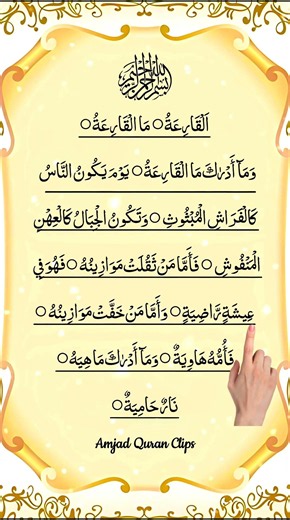 بسم الله الرحمن الرحيم
اَلْقَارِعَةُ ○ مَا الْقَارِعَةُ ○
وَمَا أَدْرٰىكَ مَا الْقَارِعَةُ ○ يَوْمَ يَكُونُ النَّاسُ
كَالْفَرَاشِ الْمَبْثُوثِ ○ وَتَكُونُ الْجِبَالُ كَالْعِهْنِ
الْمَنْفُوشِ ○ فَأَمَّا مَنْ ثَقُلَتْ مَوَازِينُهُ ○ فَهُوَ فِي
عِيشَةٍ رَّاضِيَةٍ ○ وَأَمَّا مَنْ خَفَّتْ مَوَازِينُهُ ○
فَأُمُّهُ هَاوِيَةٌ ○ وَمَا أَدْرٰىكَ مَا هِيَهْ ○
نَارٌ حَامِيَةٌ ○
Amjad Quran Clips